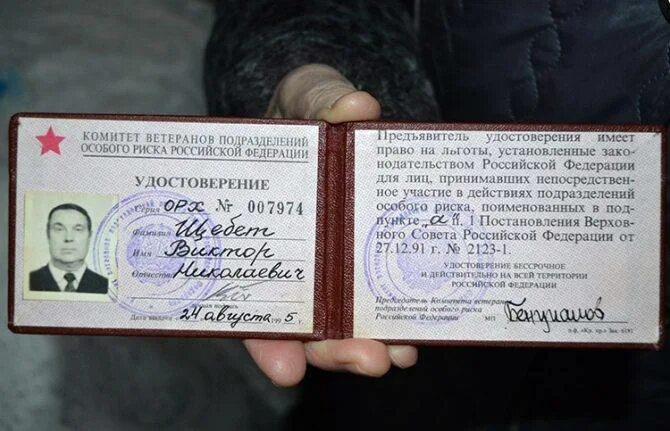 КОМИТЕТ ВЕТЕРАНОВ ПОДРАЗДЕЛЕНИЙ
ОСОБОГО РИСКА РОССИЙСКОЙ ФЕДЕРАЦИИ
УДОСТОВЕРЕНИЕ
Серия ОРХ № 007974
Фамилия Щебет
Имя Виктор
Отчество Николаевич
личная подпись
Дата выдачи 24 августа 1995 г.
Предъявитель удостоверения имеет
право на льготы, установленные зако-
нодательством Российской Федерации
для лиц, принимавших непосредствен-
ное участие в действиях подразделений
особого риска, поименованных в под-
пункте „а" п. 1 Постановления Верхов-
ного Совета Российской Федерации от
27.12.91 г. № 2123-1.
УДОСТОВЕРЕНИЕ БЕССРОЧНОЕ
И ДЕЙСТВИТЕЛЬНО НА ВСЕЙ ТЕРРИТОРИИ
РОССИЙСКОЙ ФЕДЕРАЦИИ
Председатель Комитета ветеранов
подразделений особого риска
Российской Федерации МП
п.ф. «Кр. пр.» Зак. 6191